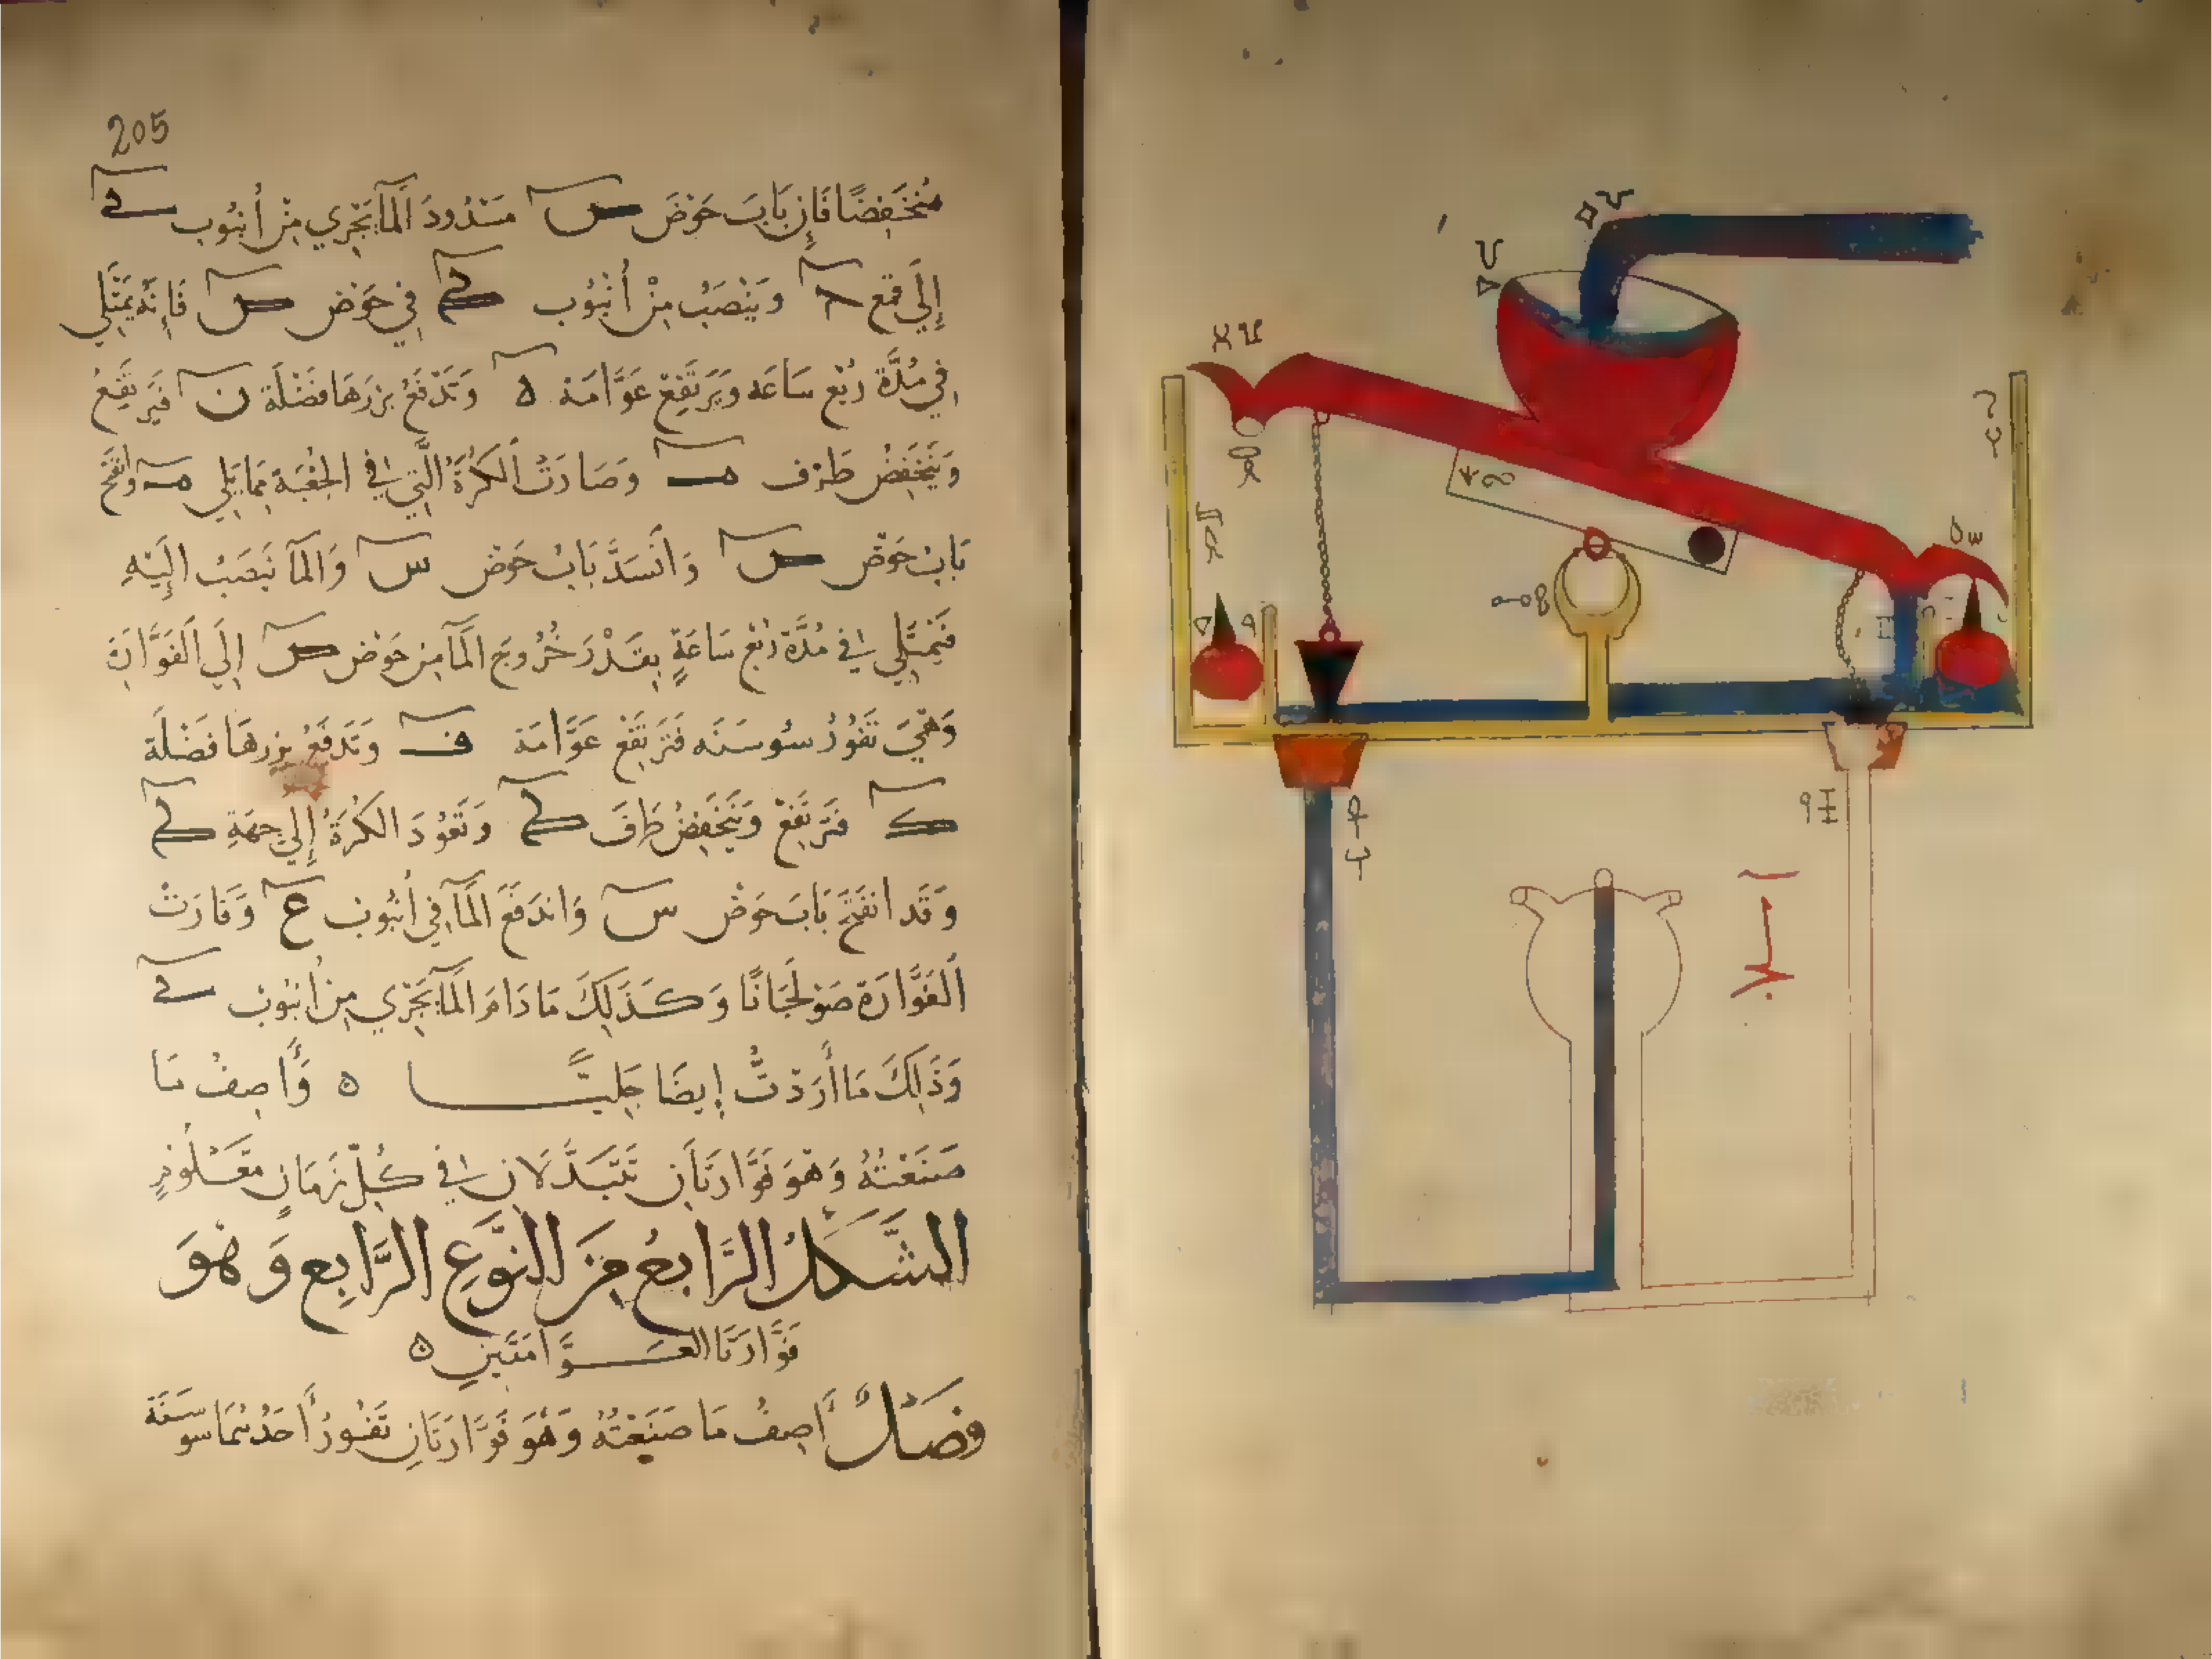 205
منخفضًا فإن باب حوض س مسدود الماء يجري من أنبوب
إلي قمع وينصب من أنبوب في حوض س فإنه يمتلي
في مدة ربع ساعه ويرتفع عوامة ه وتدفع بزرها فضلة ن فيرتفع
وينخفض طرف م وصارت الكرة التي في الجعبة مما يلي م وانفتح
باب حوض س وانسد باب حوض س والماء ينصب إليه
فيمتلي في مدة ربع ساعة بقدر خروج الماء من حوض س إلي الفوارة
وهي تفور سوسنه فترتفع عوامة ف وتدفع بزرها فضلة
ك فترتفع وينخفض طرف وتعود الكرة إلي جهة
وقد انفتح باب حوض س واندفع الماء في أنبوب ع وفارت
الفوارة صولجانًا وكذلك ما دام الماء يجري من أنبوب
وذلك ما أردت إيضا جليًا ه وأصف ما
صنعته وهو فوارتان تتبدلان في كل زمان معلوم
الشكل الرابع من النوع الرابع وهو
فوارتا العوامتين ه
فصل أصف ما صنعته وهو فوارتان تفور أحدهما سوسنة